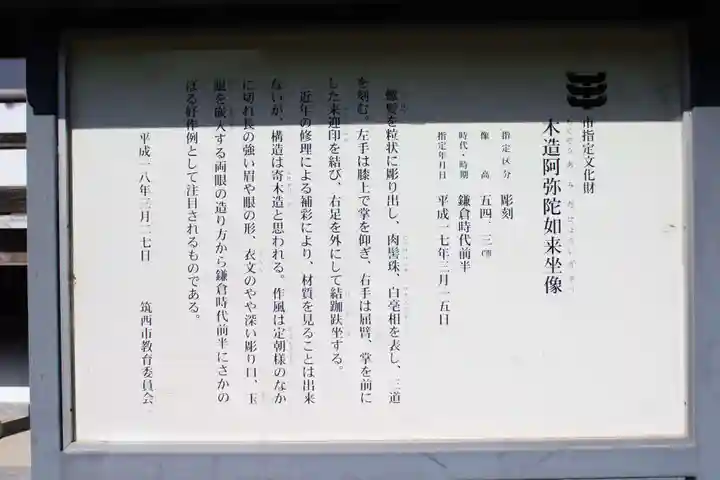 市指定文化財
木造阿弥陀如来坐像
指定区分 彫刻
像高 五四・三㎝
時代・時期 鎌倉時代前半
指定年月日 平成一七年三月一五日
螺髪を粒状に彫り出し、肉髻珠、白毫相を表し、三道
を刻む。左手は膝上で掌を仰ぎ、右手は屈臂、掌を前に
した来迎印を結び、右足を外にして結跏趺坐する。
近年の修理による補彩により、材質を見ることは出来
ないが、構造は寄木造と思われる。作風は定朝様のなか
に切れ長の強い眉や眼の形、衣文のやや深い彫り口、玉
眼を嵌入する両眼の造り方から鎌倉時代前半にさかの
ぼる好作例として注目されるものである。
平成一八年三月二七日 筑西市教育委員会